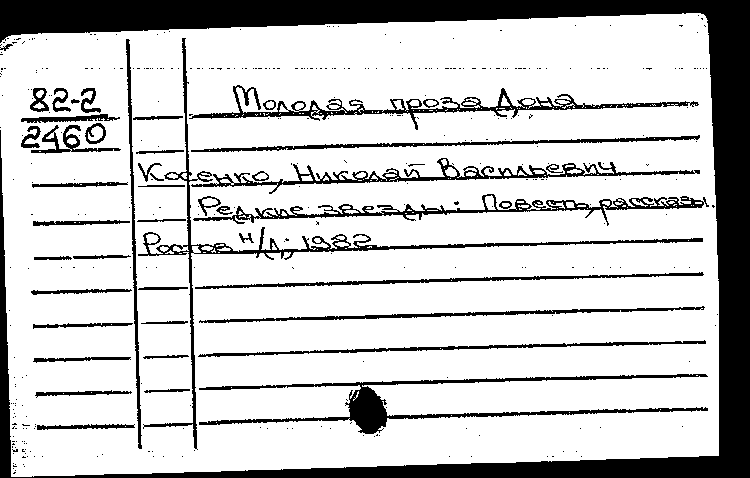 82-2
2460
Молодая проза Дона
Косенко, Николай Васильевич
Редкие звезды: Повесть, рассказы.
Ростов н/Д; 1982